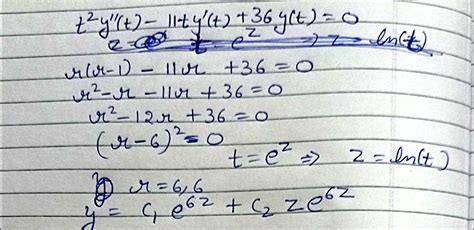 t²y''(t) - 11ty'(t) + 36y(t) = 0
z = t = e^z ⇒ z = ln(t)
r(r-1) - 11r + 36 = 0
r² - r - 11r + 36 = 0
r² - 12r + 36 = 0
(r-6)² = 0
t = e^z ⇒ z = ln(t)
r = 6, 6
y = c₁ e^{6z} + c₂ z e^{6z}